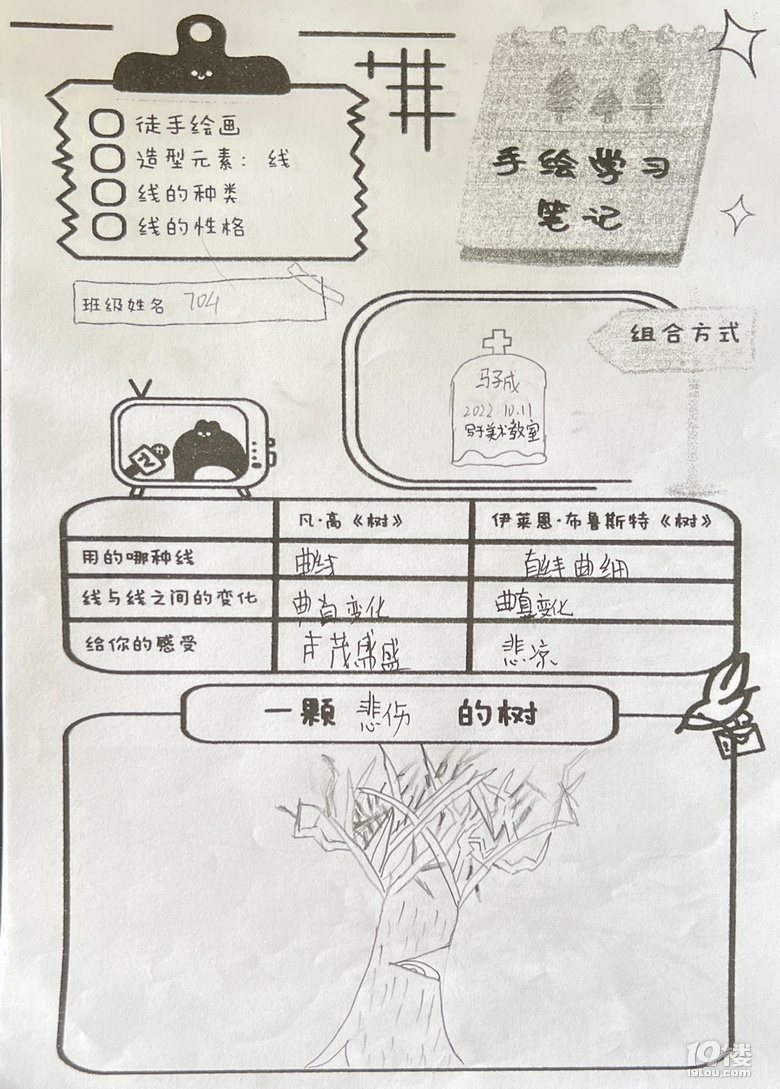 徒手绘画
造型元素：线
线的种类
线的性格
手绘学习
笔记
班级姓名 704
组合方式
马子成
2022.10.11
写于美术教室
凡·高《树》 伊莱恩·布鲁斯特《树》
用的哪种线 曲线 直线 曲 细
线与线之间的变化 曲直变化 曲直变化
给你的感受 茂盛 悲凉
一颗 悲伤 的树
19楼
19lou.com